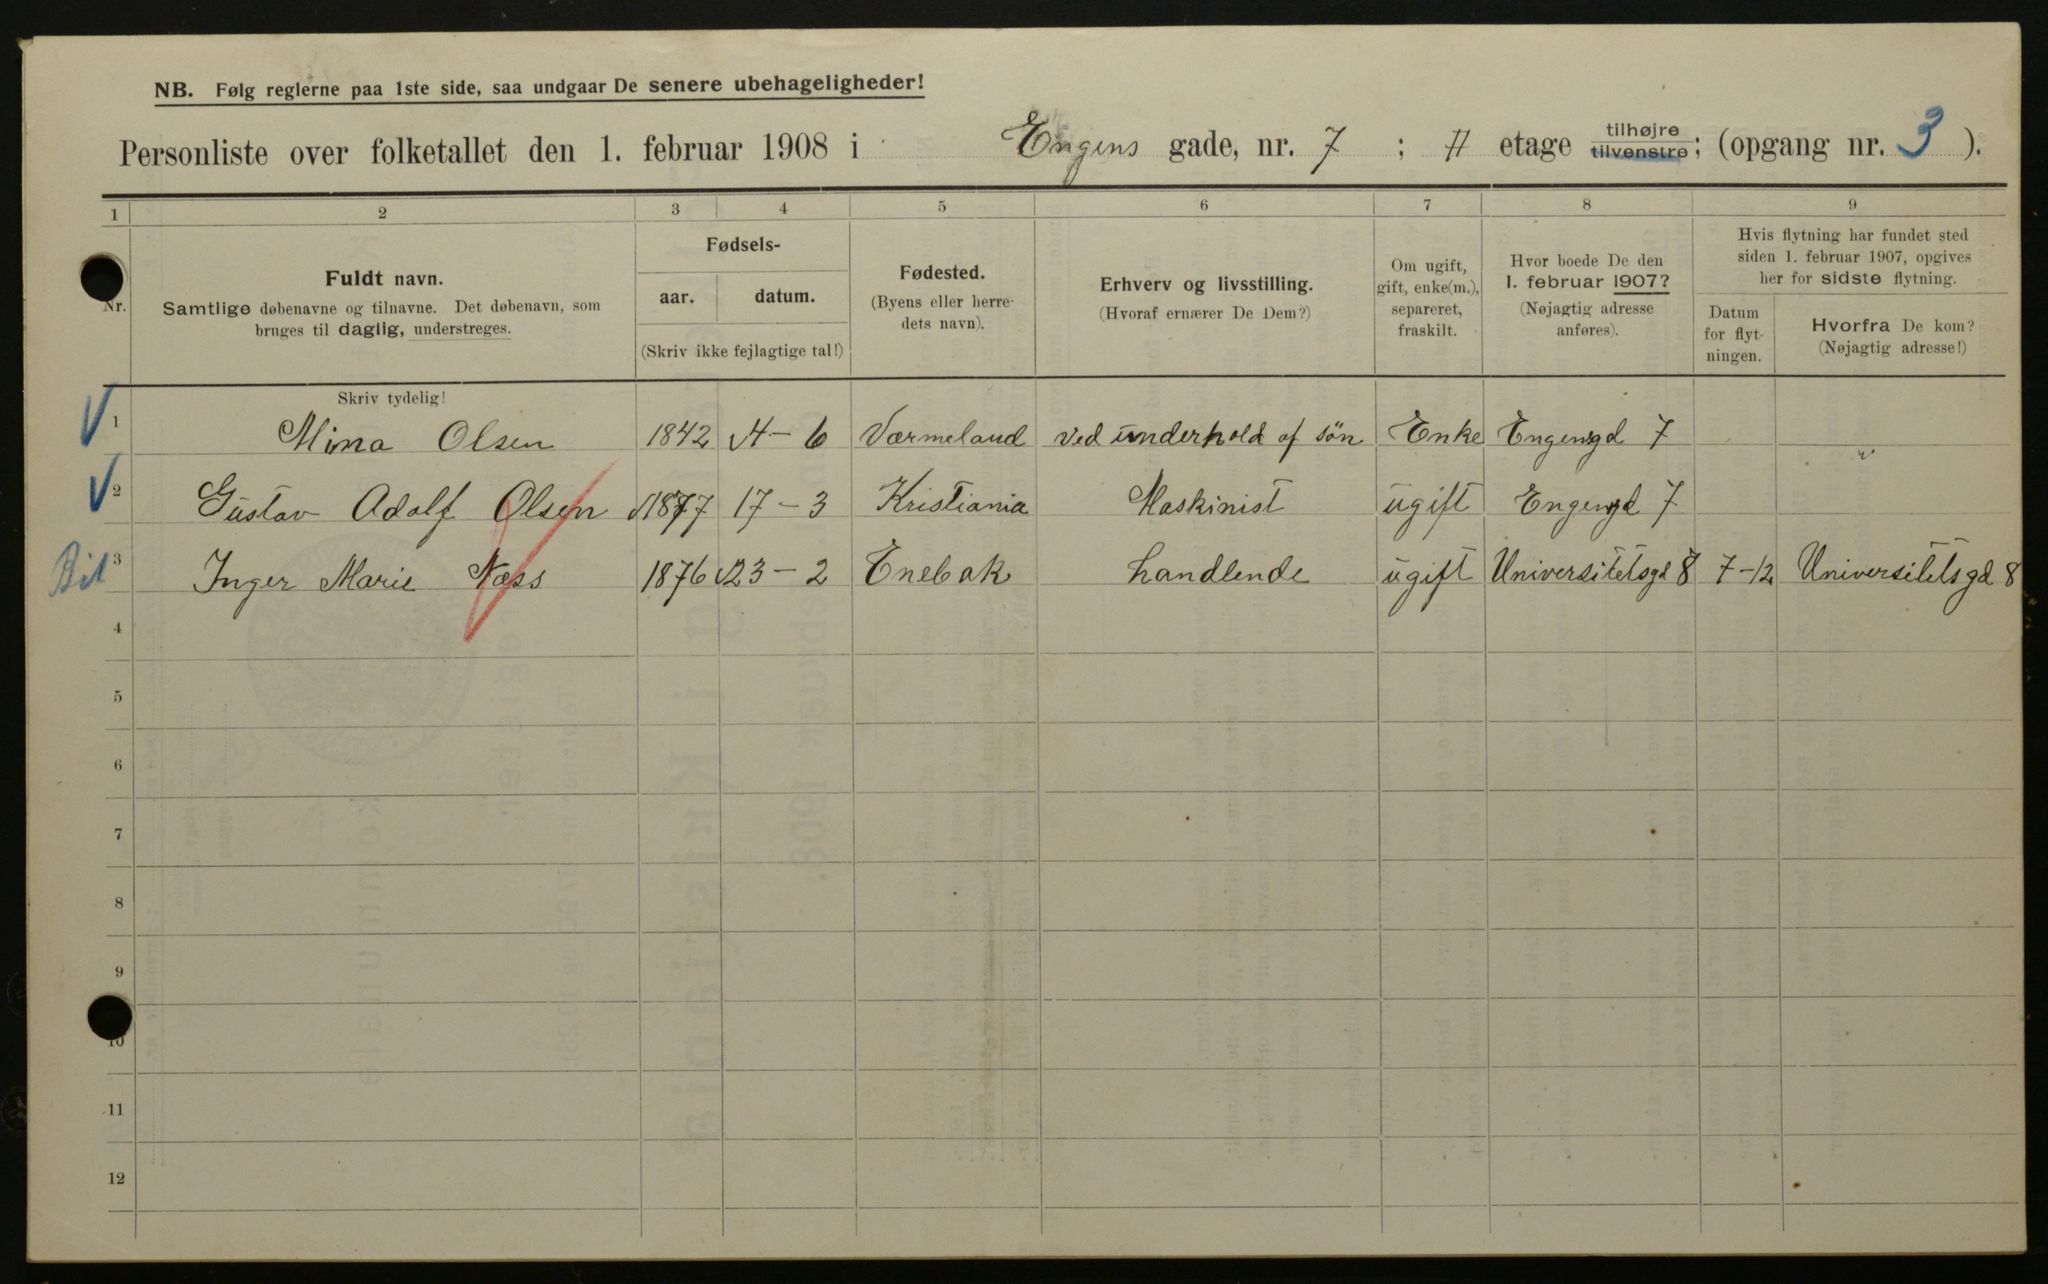 NB. Følg reglerne paa 1ste side, saa undgaar De senere ubehageligheder!
Personliste over folketallet den 1. februar 1908 i Engens gade, nr. 7 ; etage tilhøjre tilvenstre; (opgang nr. 3 ).
1 2 3 4 5 6 7 8 9
Nr.
Fuldt navn.
Samtlige døbenavne og tilnavne. Det døbenavn, som
bruges til daglig, understreges.
Fødsels-
aar. datum.
(Skriv ikke fejlagtige tal!)
Fødested.
(Byens eller herre-
dets navn).
Erhverv og livsstilling.
(Hvoraf ernærer De Dem?)
Om ugift,
gift, enke(m.),
separeret,
fraskilt.
Hvor boede De den
1. februar 1907?
(Nøjagtig adresse
anføres).
Hvis flytning har fundet sted
siden 1. februar 1907, opgives
her for sidste flytning.
Datum
for flyt-
ningen.
Hvorfra De kom?
(Nøjagtig adresse!)
Skriv tydelig!
1 Mina Olsen 1842 4-6 Værmeland ved underhold af søn Enke Engensgd 7
2 Gustav Adolf Olsen 1877 17-3 Kristiania Maskinist ugift Engensgd 7
Bil 3 Inger Marie Næss 1876 23-2 Enebak handlende ugift Universitetsgd 8 7-12 Universitetsgd 8
4
5
6
7
8
9
10
11
12